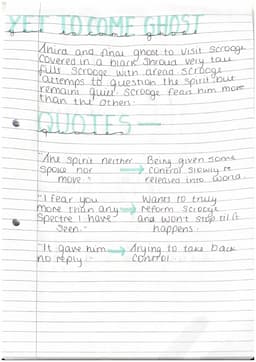 YET TO COME GHOST
get to come ghost
Third and final ghost to visit scrooge
covered in a black shroud very tall
fills scrooge with dread scrooge
attemps to question the spirit but
remains quiet. Scrooge fears him more
than the others.
QUOTES —
quotes
"The spirit neither
spoke nor
move."
Being given some
control slowly is
released into world
"I fear you
more than any
spectre I have
seen."
Wants to truly
reform scrooge
and won't stop til it
happens.
"It gave him
no reply."
Trying to take back
control.